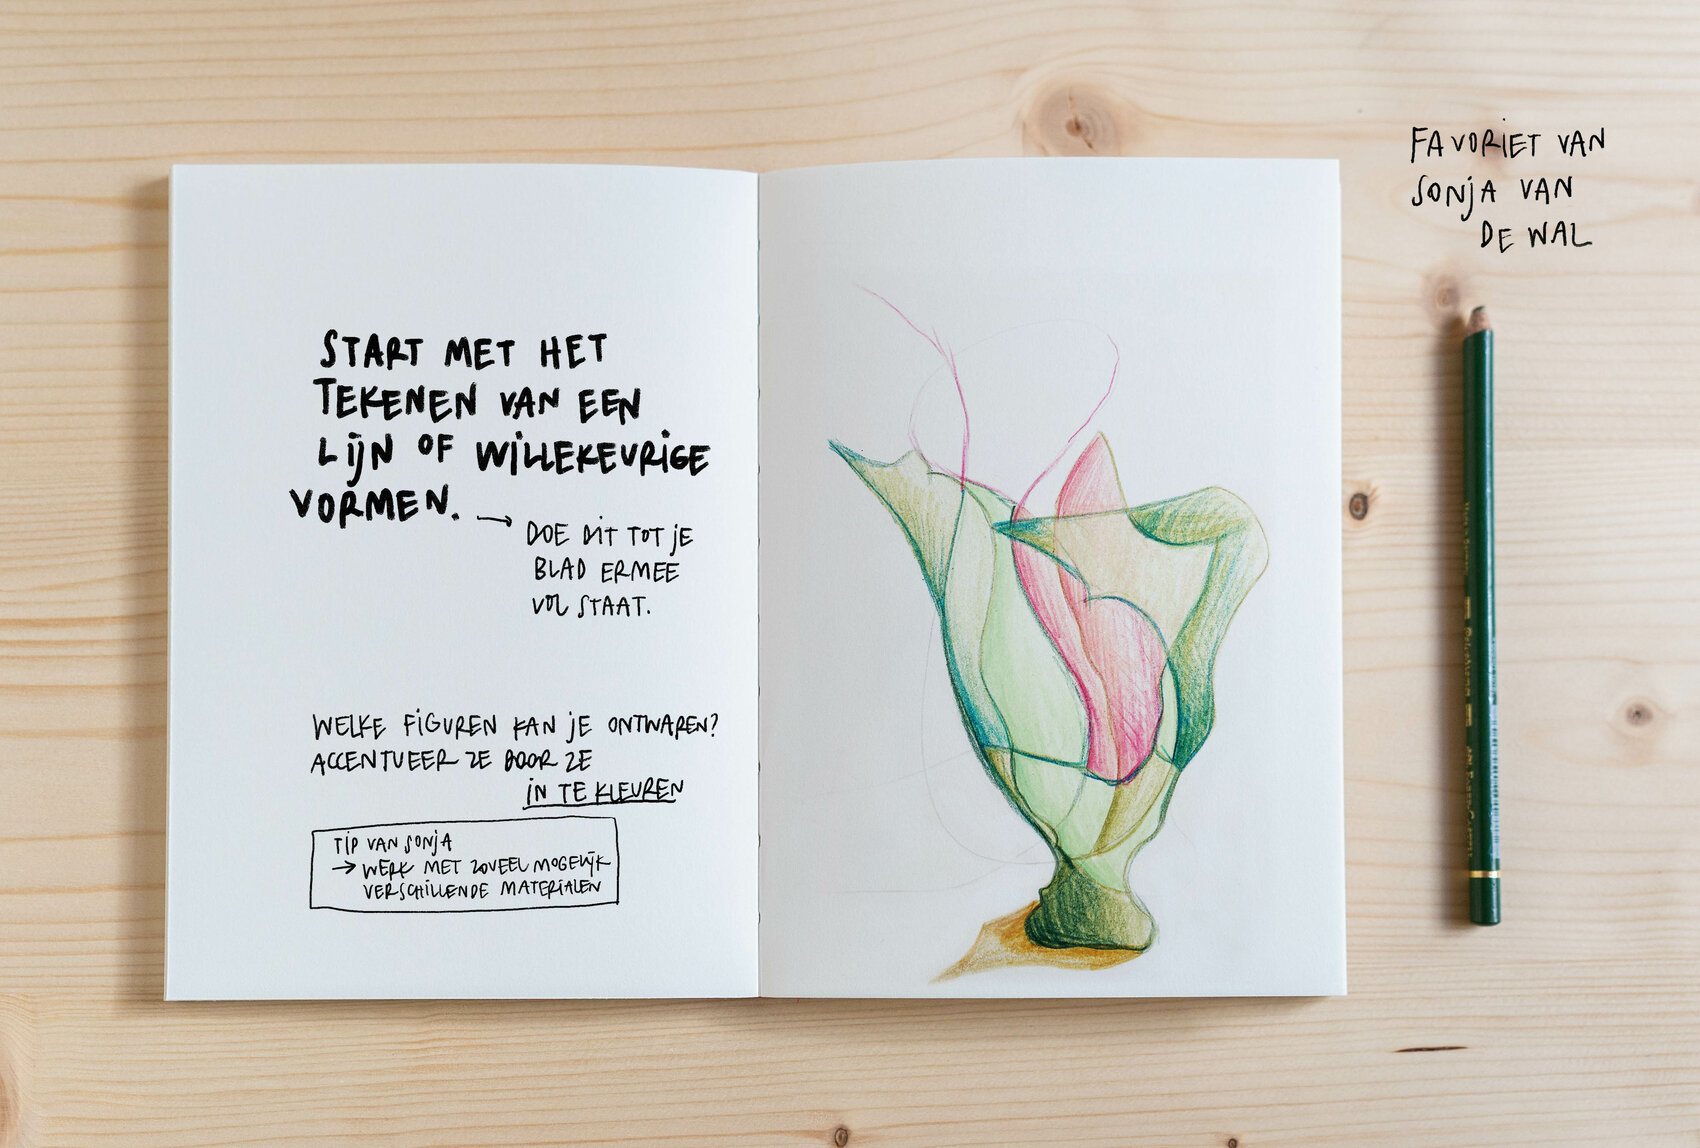 START MET HET
TEKENEN VAN EEN
LIJN OF WILLEKEURIGE
VORMEN. →
DOE DIT TOT JE
BLAD ERMEE
VOL STAAT.
WELKE FIGUREN KAN JE ONTWAREN?
ACCENTUEER ZE DOOR ZE
IN TE KLEUREN
TIP VAN SONJA
→ WERK MET ZOVEEL MOGELIJK
VERSCHILLENDE MATERIALEN
FAVORIET VAN
SONJA VAN
DE WAL